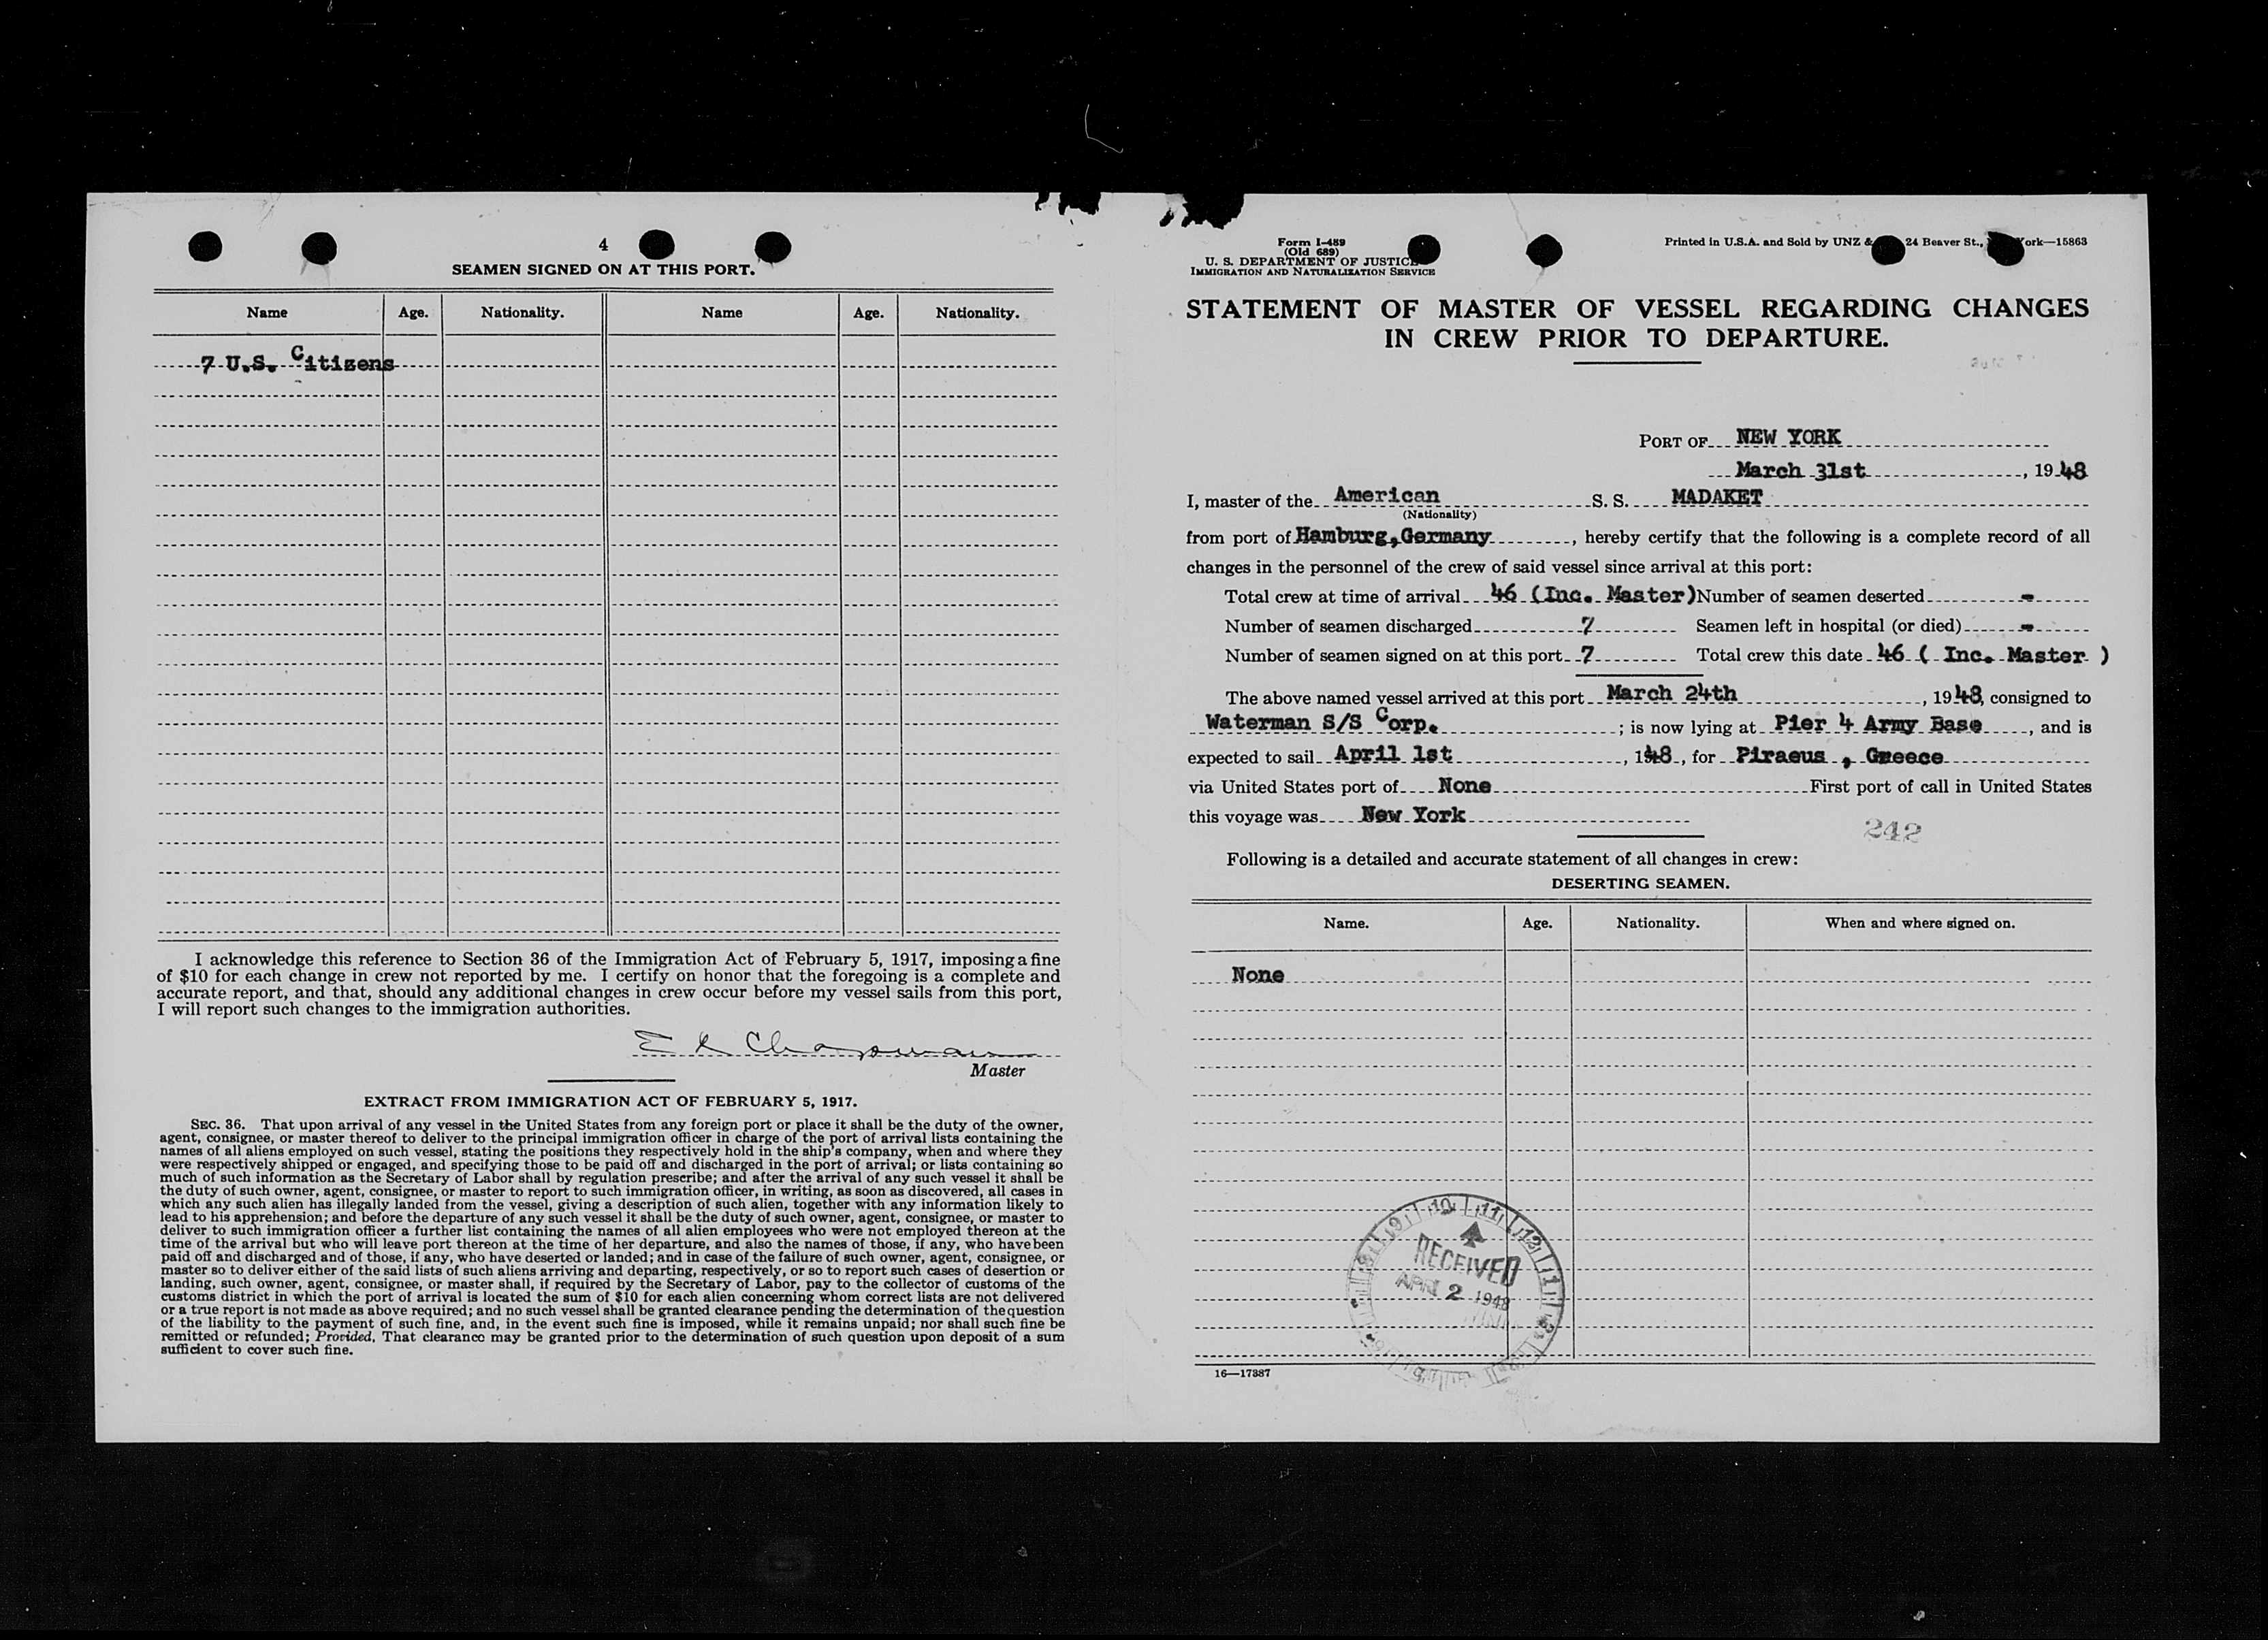 4
SEAMEN SIGNED ON AT THIS PORT.
Name Age. Nationality. Name Age. Nationality.
7 U.S. Citizens
I acknowledge this reference to Section 36 of the Immigration Act of February 5, 1917, imposing a fine
of $10 for each change in crew not reported by me. I certify on honor that the foregoing is a complete and
accurate report, and that, should any additional changes in crew occur before my vessel sails from this port,
I will report such changes to the immigration authorities.
Chapman
Master
EXTRACT FROM IMMIGRATION ACT OF FEBRUARY 5, 1917.
SEC. 36. That upon arrival of any vessel in the United States from any foreign port or place it shall be the duty of the owner,
agent, consignee, or master thereof to deliver to the principal immigration officer in charge of the port of arrival lists containing the
names of all aliens employed on such vessel, stating the positions they respectively hold in the ship's company, when and where they
were respectively shipped or engaged, and specifying those to be paid off and discharged in the port of arrival; or lists containing so
much of such information as the Secretary of Labor shall by regulation prescribe; and after the arrival of any such vessel it shall be
the duty of such owner, agent, consignee, or master to report to such immigration officer, in writing, as soon as discovered, all cases in
which any such alien has illegally landed from the vessel, giving a description of such alien, together with any information likely to
lead to his apprehension; and before the departure of any such vessel it shall be the duty of such owner, agent, consignee, or master to
deliver to such immigration officer a further list containing the names of all alien employees who were not employed thereon at the
time of the arrival but who will leave port thereon at the time of her departure, and also the names of those, if any, who have been
paid off and discharged and of those, if any, who have deserted or landed; and in case of the failure of such owner, agent, consignee, or
master so to deliver either of the said lists of such aliens arriving and departing, respectively, or so to report such cases of desertion or
landing, such owner, agent, consignee, or master shall, if required by the Secretary of Labor, pay to the collector of customs of the
customs district in which the port of arrival is located the sum of $10 for each alien concerning whom correct lists are not delivered
or a true report is not made as above required; and no such vessel shall be granted clearance pending the determination of the question
of the liability to the payment of such fine, and, in the event such fine is imposed, while it remains unpaid; nor shall such fine be
remitted or refunded; Provided, That clearance may be granted prior to the determination of such question upon deposit of a sum
sufficient to cover such fine.
Form I-489
(Old 689)
U. S. DEPARTMENT OF JUSTICE
IMMIGRATION AND NATURALIZATION SERVICE
Printed in U.S.A. and Sold by UNZ & 24 Beaver St., ork—15863
STATEMENT OF MASTER OF VESSEL REGARDING CHANGES
IN CREW PRIOR TO DEPARTURE.
PORT OF NEW YORK
March 31st, 1948
I, master of the American S. S. MADAKET
(Nationality)
from port of Hamburg, Germany, hereby certify that the following is a complete record of all
changes in the personnel of the crew of said vessel since arrival at this port:
Total crew at time of arrival 46 (Inc. Master) Number of seamen deserted -
Number of seamen discharged 7 Seamen left in hospital (or died) -
Number of seamen signed on at this port 7 Total crew this date 46 ( Inc. Master )
The above named vessel arrived at this port March 24th, 1948, consigned to
Waterman S/S Corp.; is now lying at Pier 4 Army Base, and is
expected to sail April 1st, 1948, for Piraeus , Greece
via United States port of None First port of call in United States
this voyage was New York
242
Following is a detailed and accurate statement of all changes in crew:
DESERTING SEAMEN.
Name. Age. Nationality. When and where signed on.
None
RECEIVED
APR 2 1948
16—17387